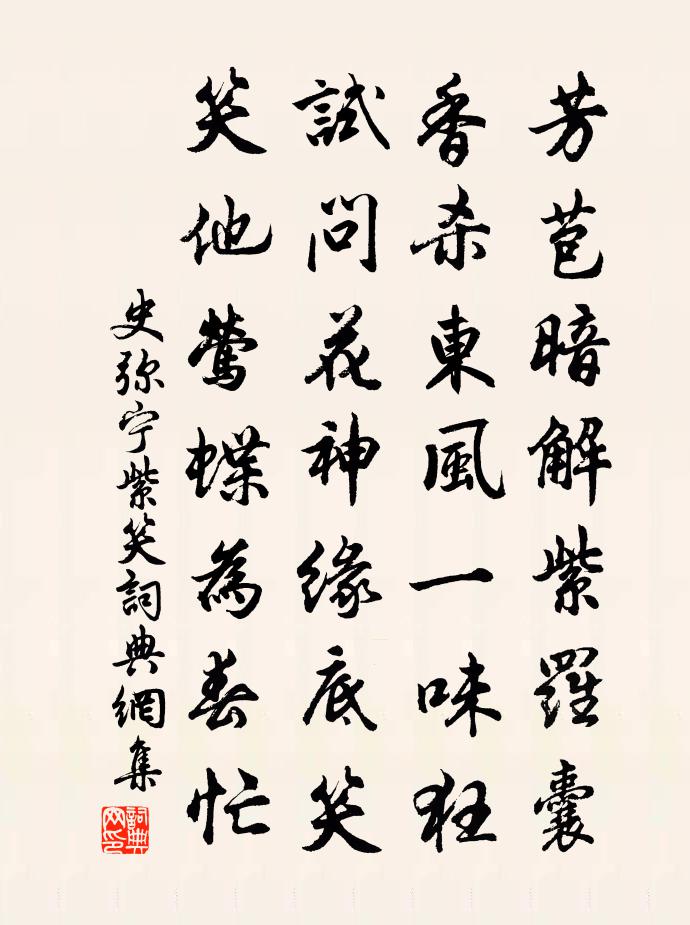 芳苞暗解紫羅囊
香杀東風一味狂
試問花神緣底笑
笑他鶯蝶為春忙
史弥宁紫笑詞典網集
詞典网印